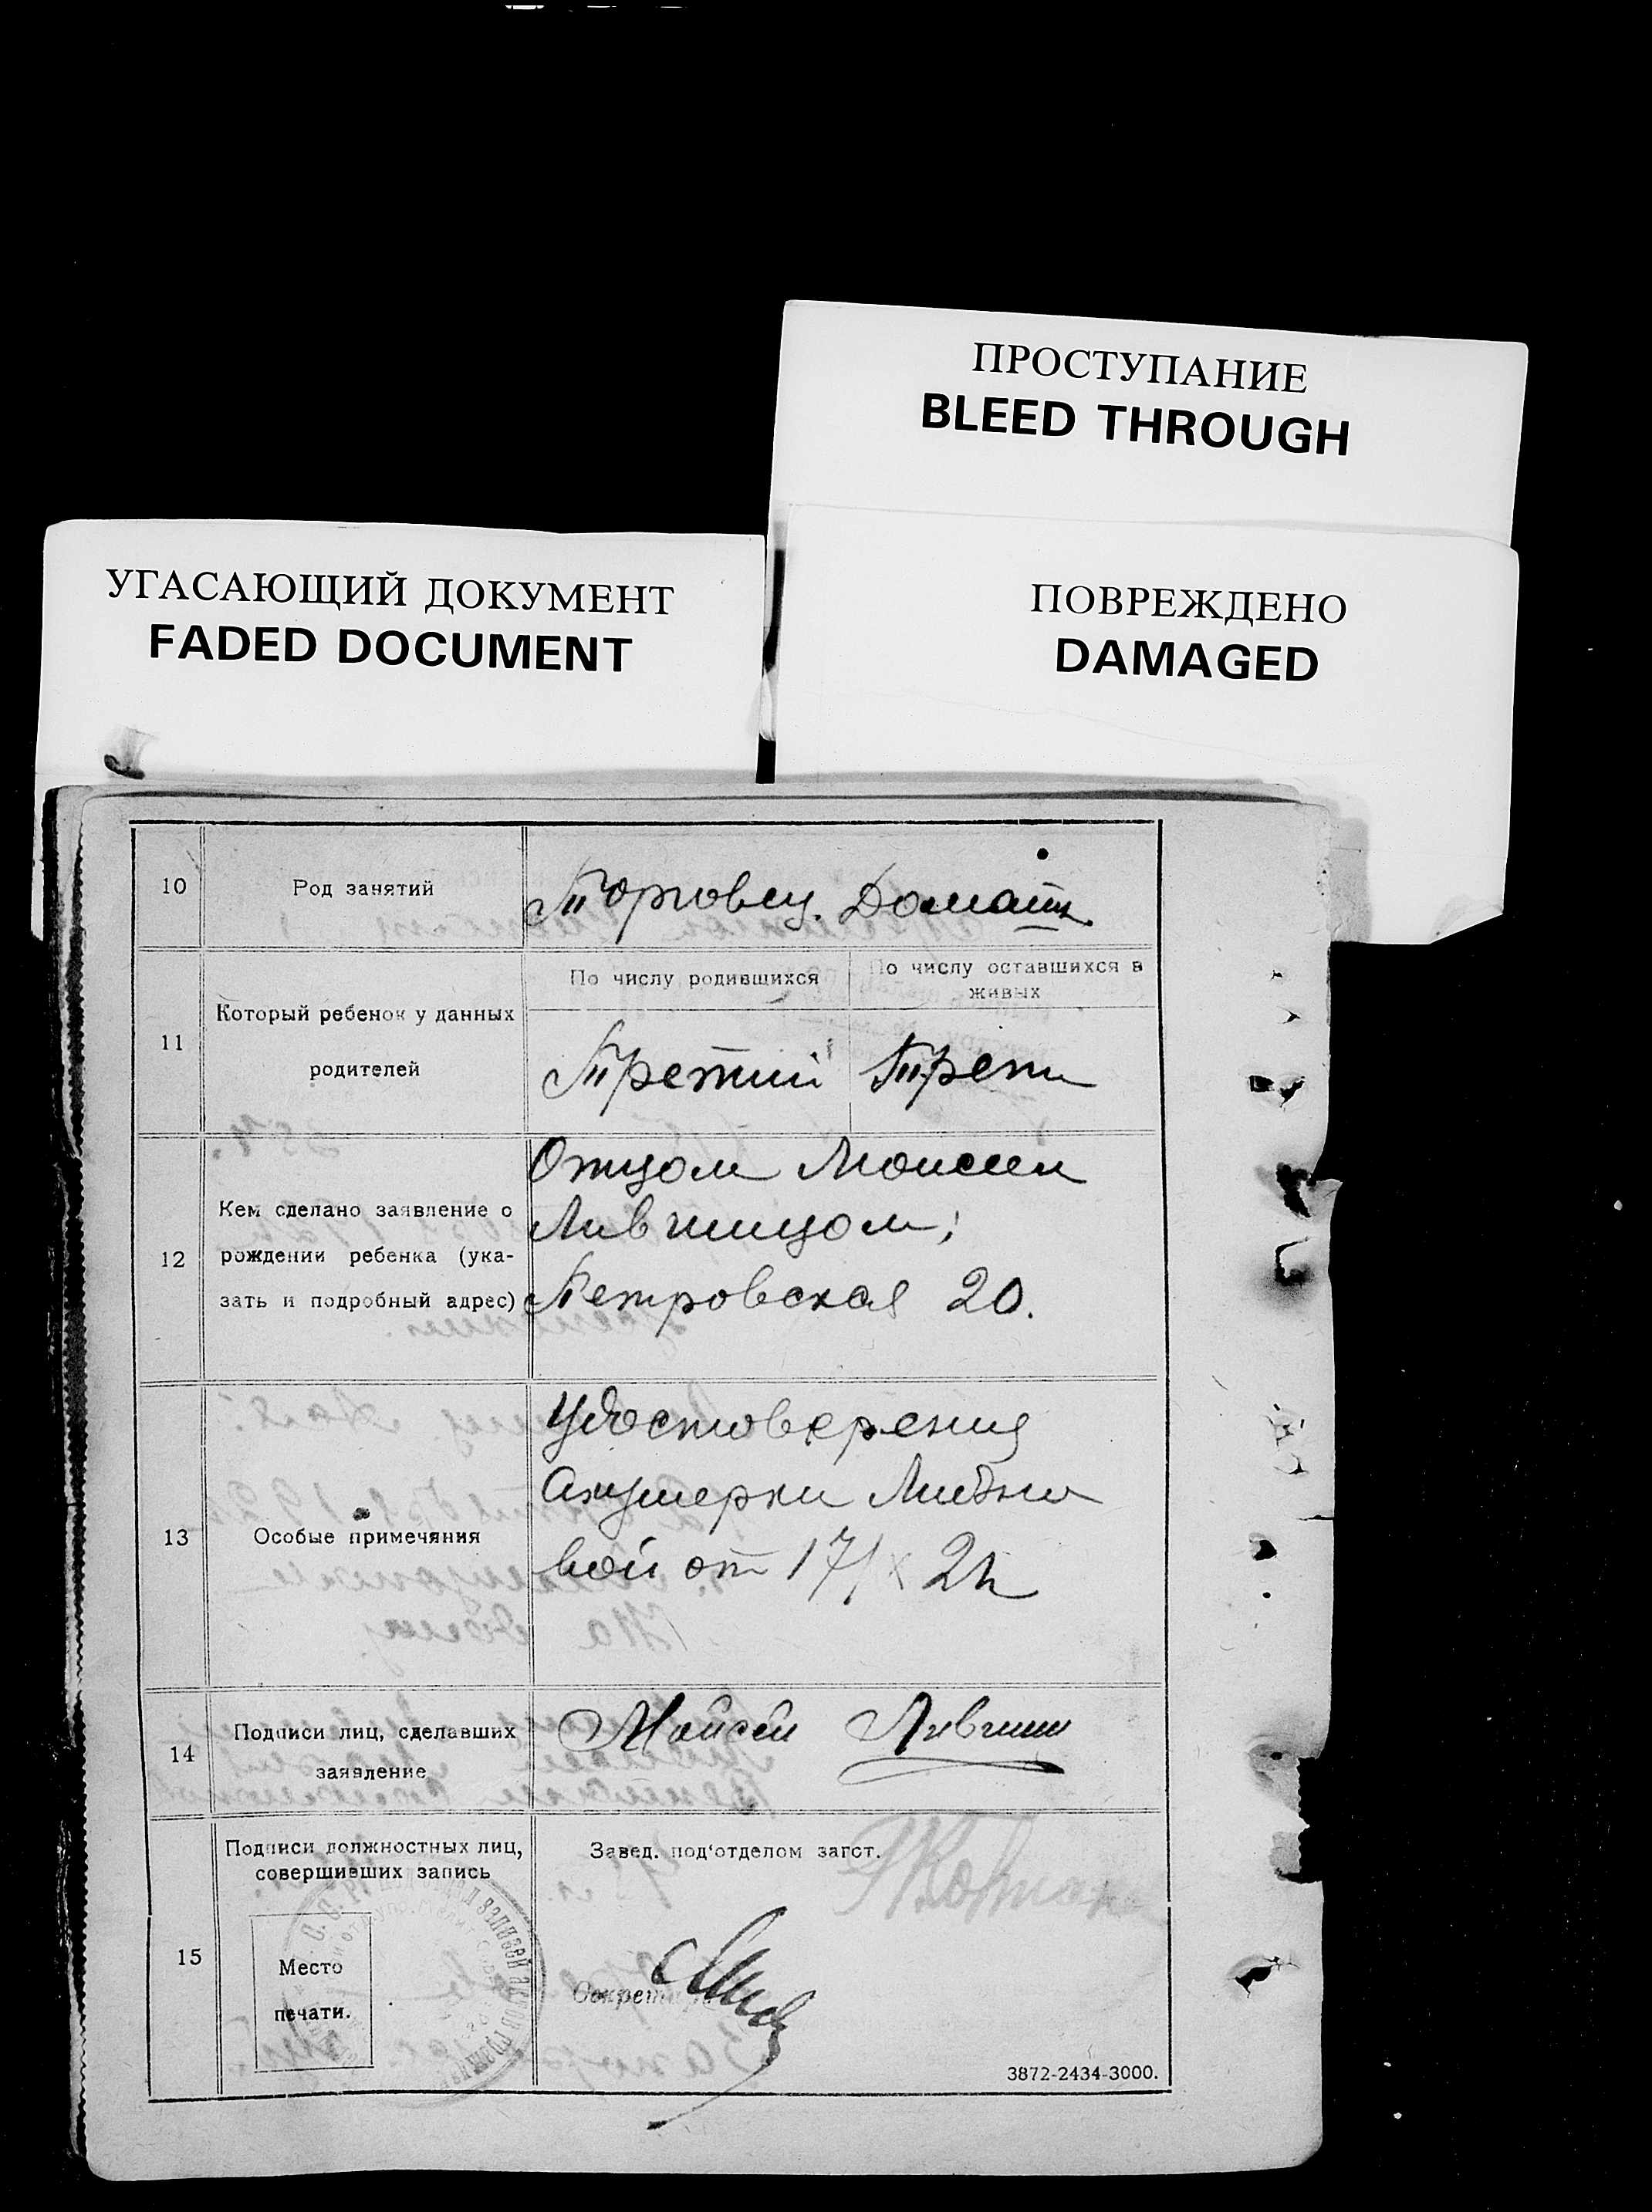 ПРОСТУПАНИЕ
BLEED THROUGH
УГАСАЮЩИЙ ДОКУМЕНТ
FADED DOCUMENT
ПОВРЕЖДЕНО
DAMAGED
10 Род занятий Торговец. Домашн
11 Который ребенок у данных родителей
По числу родившихся
По числу оставшихся в живых
Третий Трети
12 Кем сделано заявление о
рождении ребенка (ука-
зать и подробный адрес)
Отцом Моисеем
Лившицом;
Петровская 20.
13 Особые примечяния
Удостоверения
Акушерки
вой от 17/X
14 Подписи лиц, сделавших
заявление
Мойсей Лившиц
15 Подписи должностных лиц,
совершивших запись
Место
печати.
Завед. под'отделом загст.
Секретарь
3872-2434-3000.